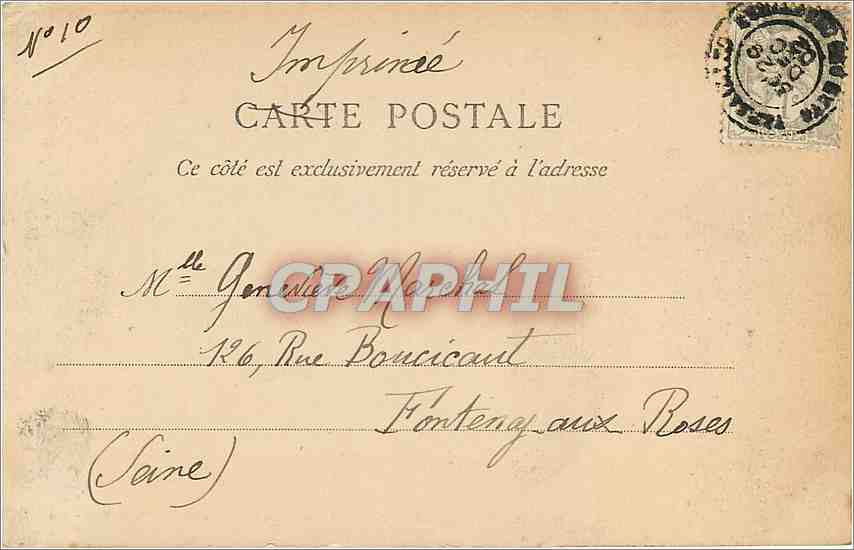 N° 10
Imprimé
CARTE POSTALE
Ce côté est exclusivement réservé à l'adresse
CPAPHIL
Mlle Geneviève Marchal
126, Rue Boucicaut
Fontenay aux Roses
(Seine)